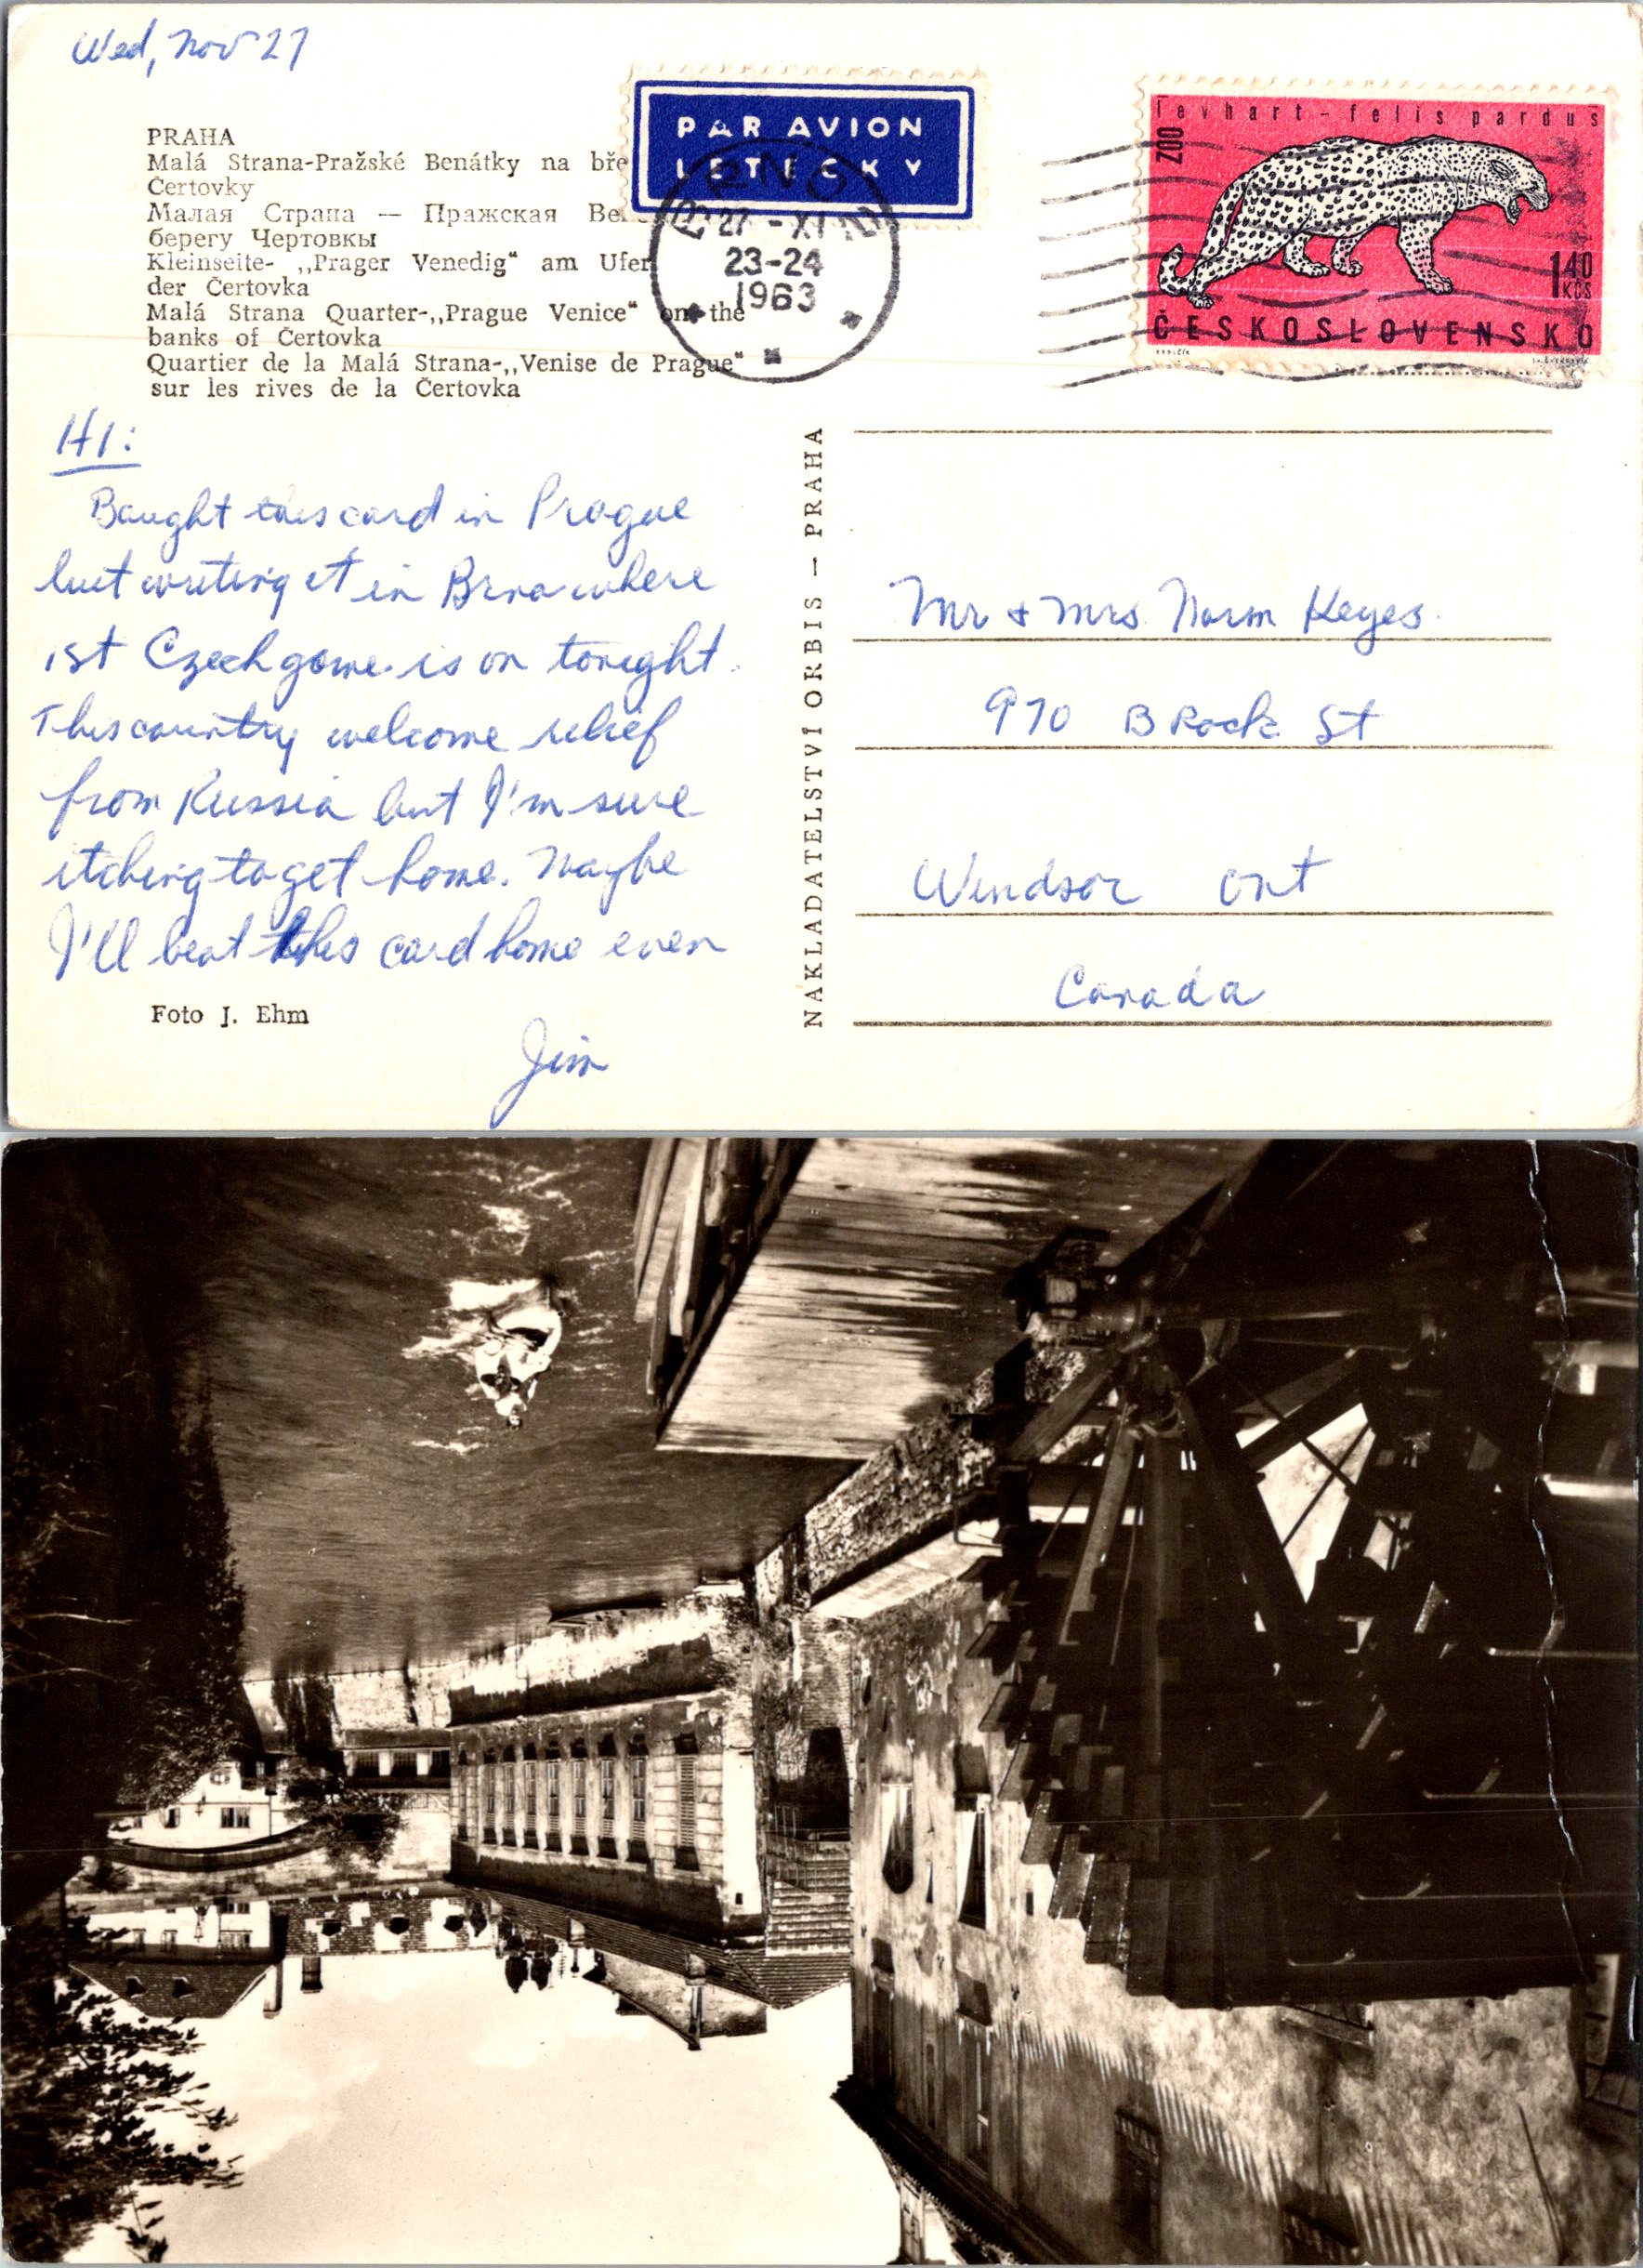 Wed, Nov 27
PRAHA
Malá Strana-Pražské Benátky na bře
Čertovky
Малая Страна — Пражская Ве
берегу Чертовкы
Kleinseite- ,,Prager Venedig“ am Ufer
der Čertovka
Malá Strana Quarter-,,Prague Venice“ on the
banks of Čertovka
Quartier de la Malá Strana-,,Venise de Prague“
sur les rives de la Čertovka
PAR AVION
LETECKY
BRNO
27 -XI
23-24
1963
levhart - felis pardus
ZOO
140
KČS
ČESKOSLOVENSKO
HI:
Bought this card in Prague
but writing it in Brno where
1st Czech game is on tonight.
This country welcome relief
from Russia but I'm sure
itching to get home. Maybe
I'll beat this card home even
Jim
Foto J. Ehm
NAKLADATELSTVÍ ORBIS — PRAHA
Mr & Mrs Norm Keyes
970 BRock St
Windsor Ont
Canada